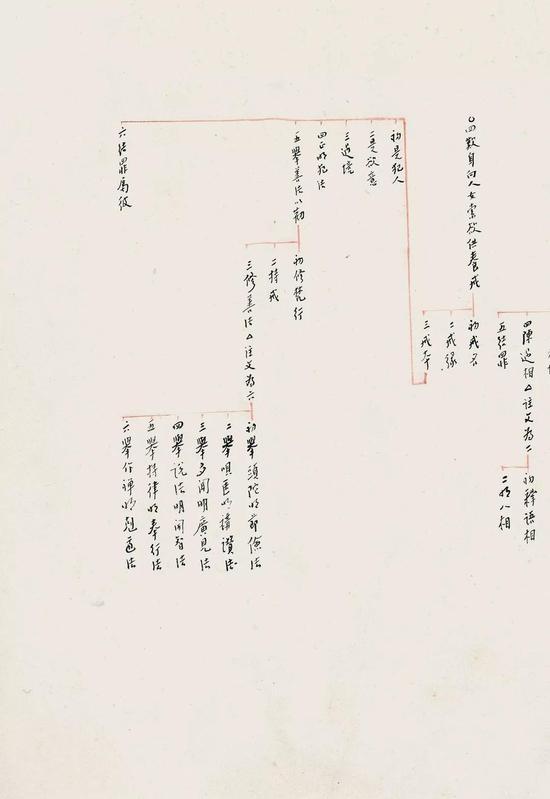 四陳過相△註文為二
五結罪
初釋語相
二明八相
○四歎身向人女索欲供養戒
初戒名
二戒緣
三戒本
初是犯人
二是欲意
三過境
四正明犯法
五舉善法以勸
六結罪屬彼
初修梵行
二持戒
三修善法△註文為六
初舉頭陀明節儉法
二舉唄匿明讚法
三舉多聞明廣見法
四舉說法明開智法
五舉持律明奉行法
六舉作禪明趣道法